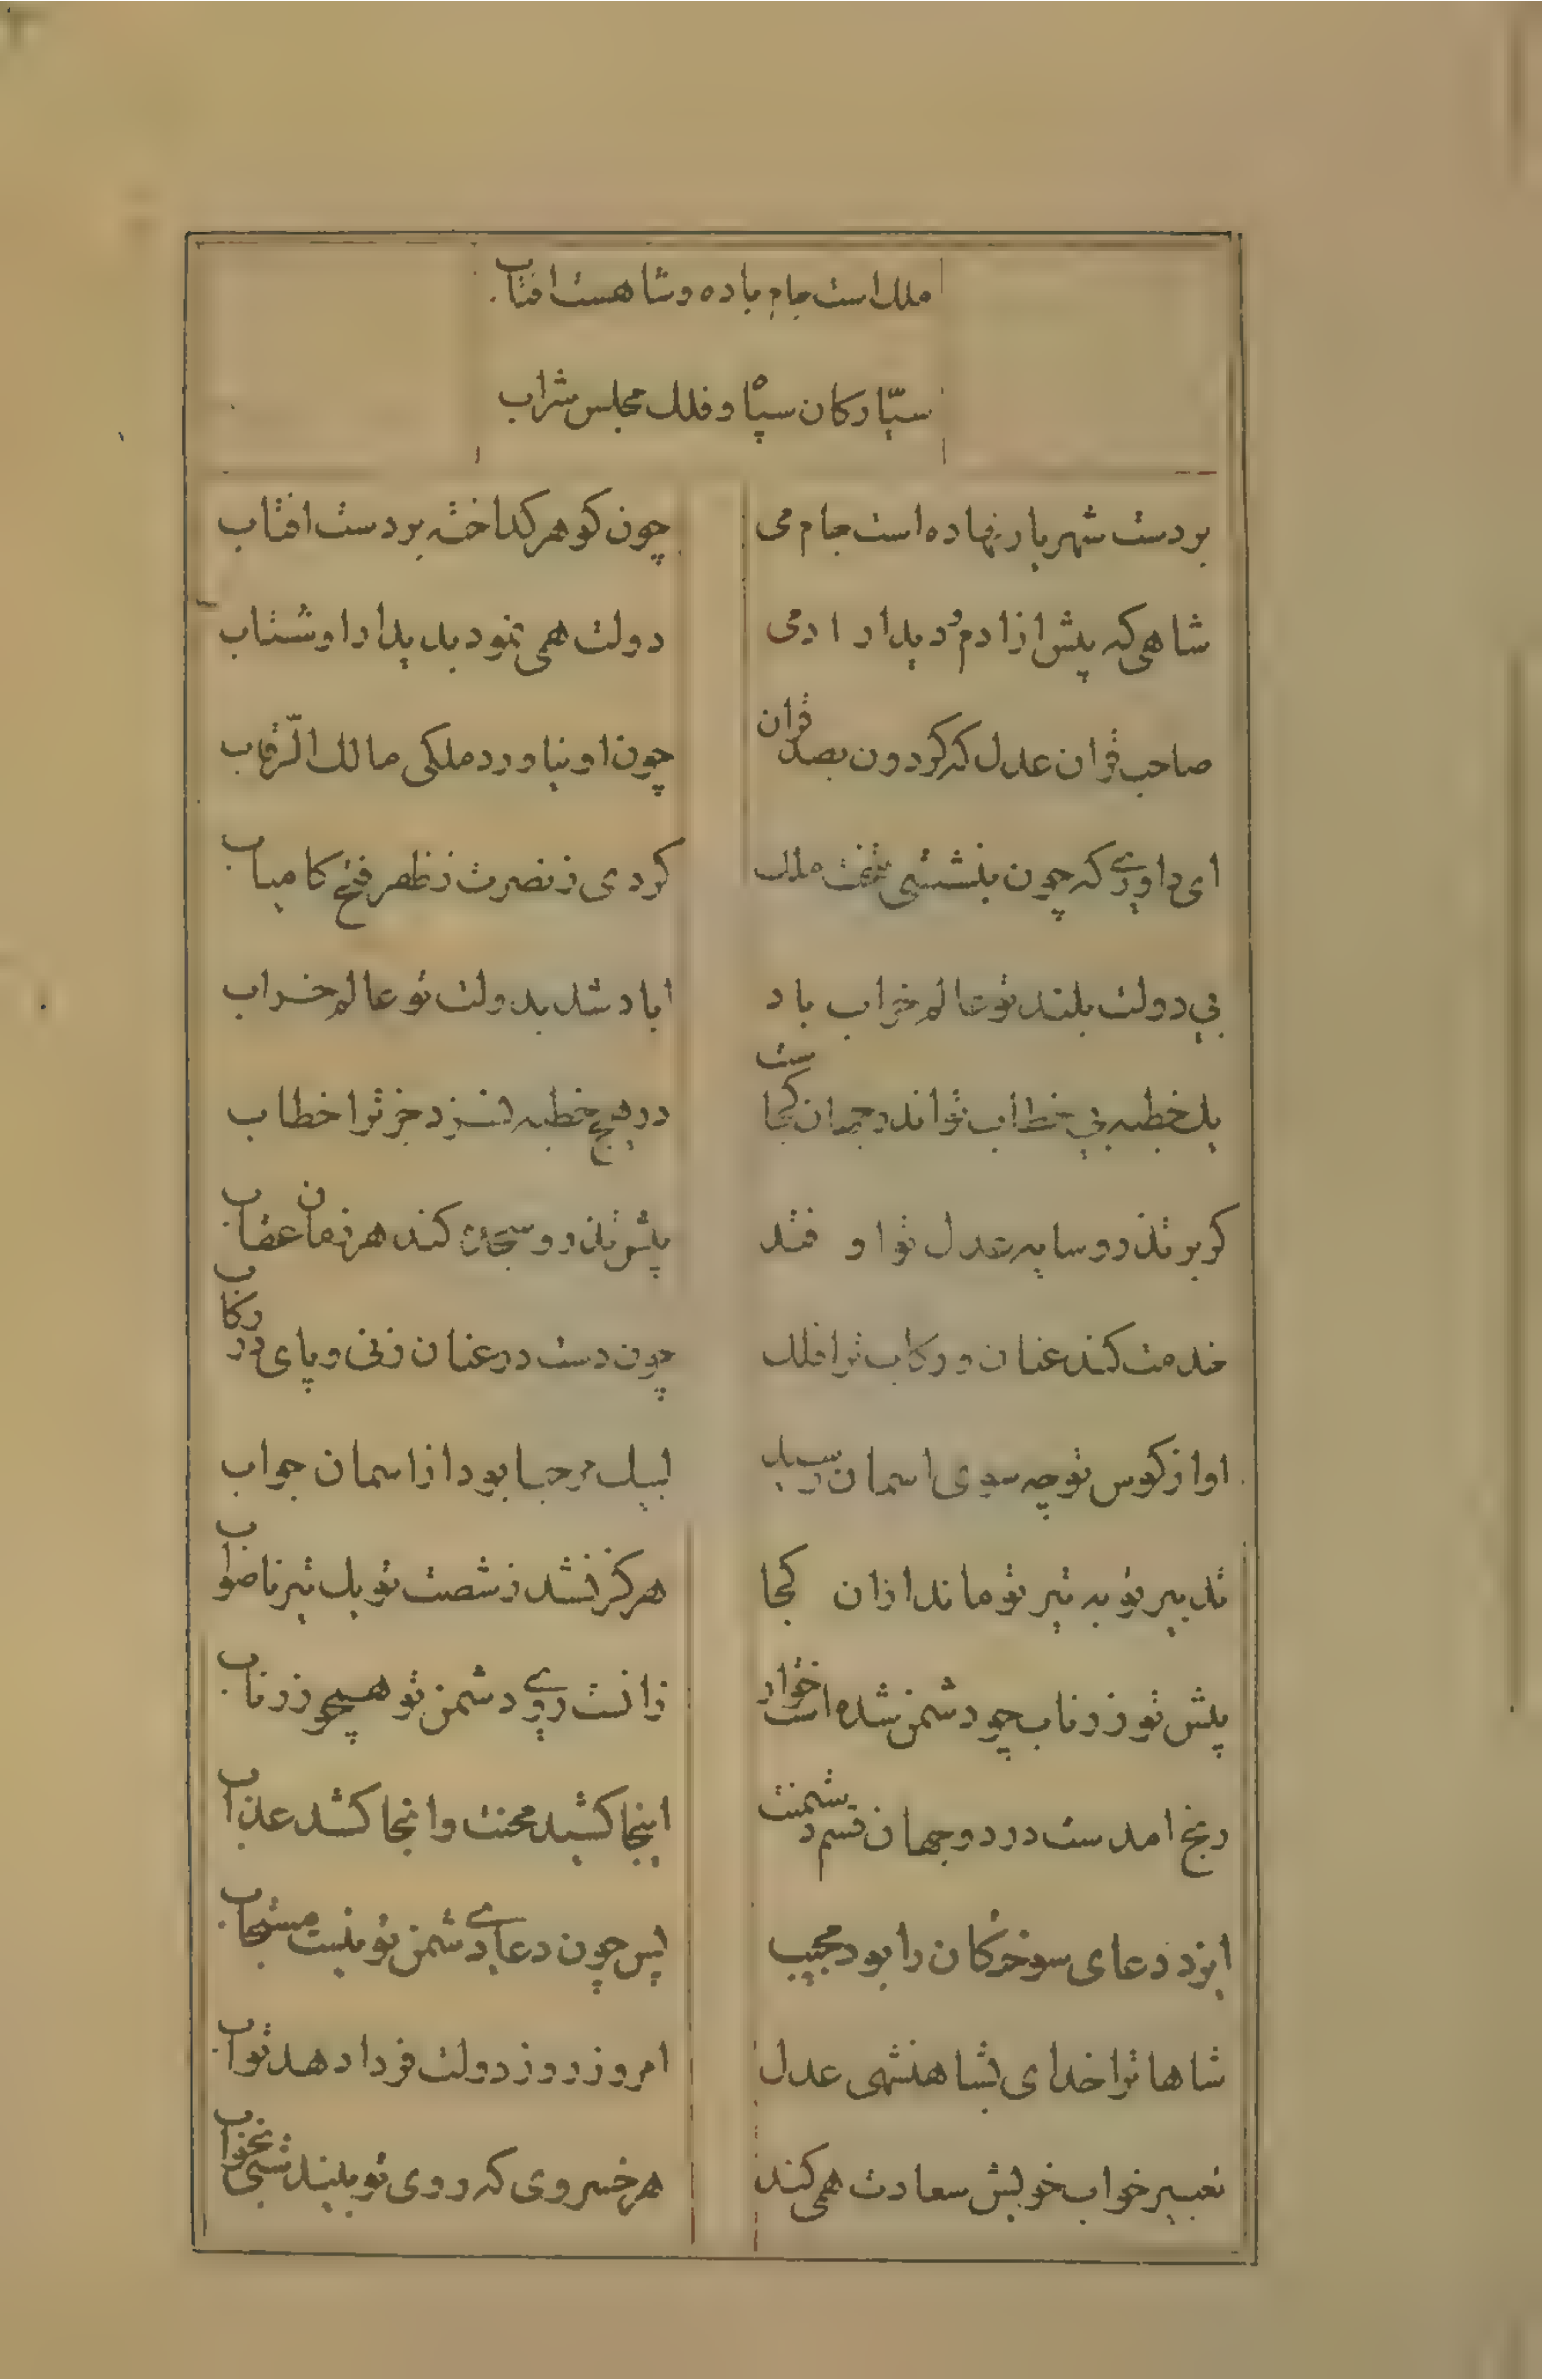 ملك است جام باده و شاهست افتاب
سیّارکان سپاه و فلك مجلس شراب
بر دست شهریار نهاده است جام می
چون کوهر کداخته بر دست افتاب
شاهی که پیش از ادم و دیدار ادمی
دولت همی نمود بدیدار او شتاب
صاحب قران عدل که کردون بصد قران
چون او نیاورد ملکی مالك الرّقاب
ای داوری که چون بنشستی بتخت ملك
کردی ز نصرت ز ظفر فتح کامیاب
بی دولت بلند تو عالم خراب باد
اباد شد بدولت تو عالم خراب
یك خطبه بی خطاب تو اندر جهان کجاست
در هیچ خطبه نسزد جز ترا خطاب
کر بر تذرو سایه عدل تو اوفتد
پیش تذرو سجده کند هر زمان عقاب
خدمت کند عنان و رکاب ترا فلك
چون دست در عنان زنی و پای در رکاب
اواز کوس تو چه سوی اسمان رسید
لبیك مرحبا بود از اسمان جواب
تدبیر تو به تیر تو ماند ازان کجا
هرکز نشد ز شصت تو یك تیر ناصواب
پیش تو زر ناب چو دشمن شده است خوار
زانست روی دشمن تو همچو زر ناب
رنج امدست در دو جهان قسم دشمنت
اینجا کشید محنت و انجا کشد عذاب
ایزد دعای سوختکان را بود مجیب
پس چون دعای دشمن تو نیست مستجاب
شاها ترا خدای بشاهنشهی عدل
امروز روز دولت فردا دهد ثواب
تعبیر خواب خویش سعادت همی کند
هر خسروی که روی تو بیند شبی بخواب